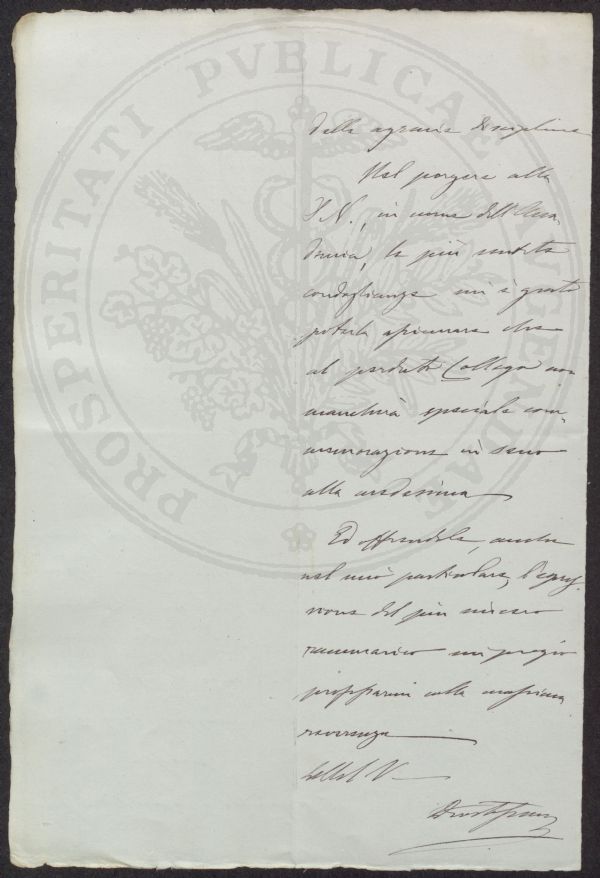 PROSPERITATI PVBLICAE AVGENDAE
delle agrarie discipline
Nel porgere alla
S. V., in nome dell'Acca
demia, le più sentite
condoglianze mi è grato
poterla assicurare che
al perduto Collega non
mancherà speciale com„
memorazione in seno
alla medesima
Ed offrendole, anche
nel mio particolare, l'espres„
sione del più sincero
rammarico mi pregio
professarmi colla massima
reverenza
Della S. V.